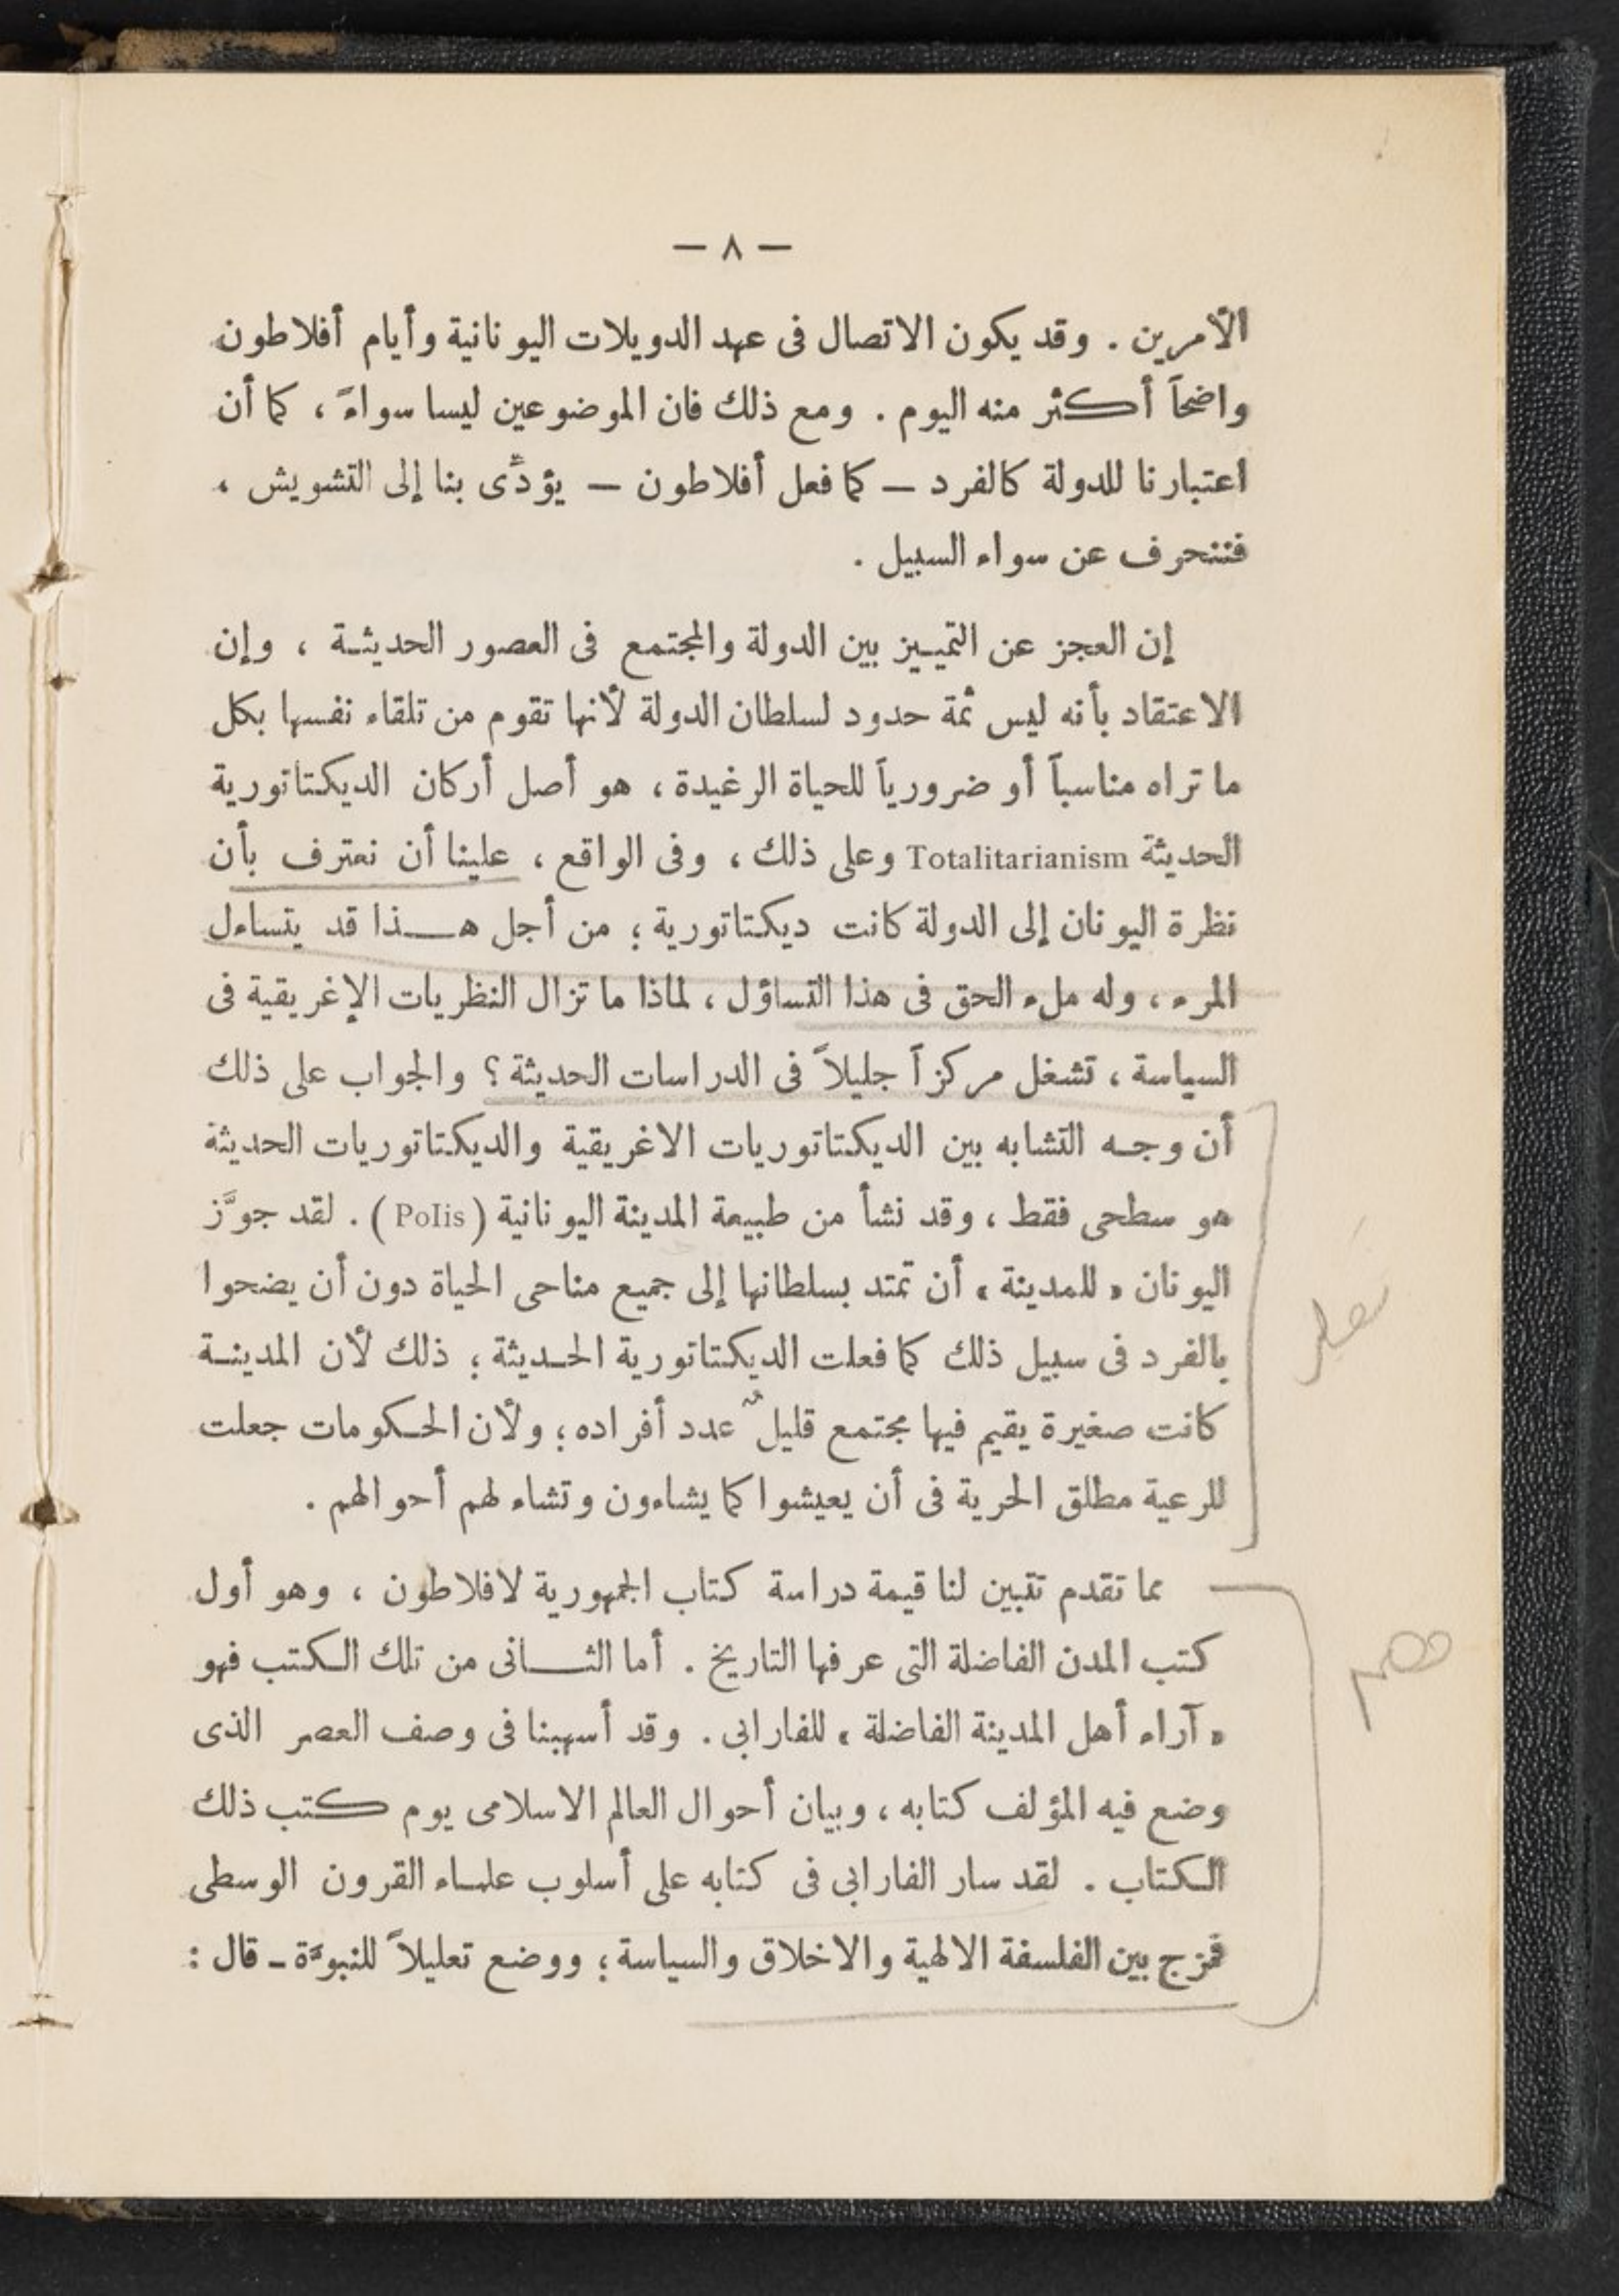 — ٨ —
الأمرين . وقد يكون الاتصال فى عهد الدويلات اليونانية وأيام أفلاطون
واضحاً أكثر منه اليوم . ومع ذلك فان الموضوعين ليسا سواءً ، كما أن
اعتبارنا للدولة كالفرد — كما فعل أفلاطون — يؤدّى بنا إلى التشويش ،
فننحرف عن سواء السبيل .
إن العجز عن التمييز بين الدولة والمجتمع فى العصور الحديثة ، وإن
الاعتقاد بأنه ليس ثمة حدود لسلطان الدولة لأنها تقوم من تلقاء نفسها بكل
ما تراه مناسباً أو ضرورياً للحياة الرغيدة ، هو أصل أركان الديكتاتورية
الحديثة Totalitarianism وعلى ذلك ، وفى الواقع ، علينا أن نعترف بأن
نظرة اليونان إلى الدولة كانت ديكتاتورية ؛ من أجل هذا قد يتساءل
المرء ، وله ملء الحق فى هذا التساؤل ، لماذا ما تزال النظريات الإغريقية فى
السياسة ، تشغل مركزاً جليلاً فى الدراسات الحديثة ؟ والجواب على ذلك
أن وجه التشابه بين الديكتاتوريات الاغريقية والديكتاتوريات الحديثة
هو سطحى فقط ، وقد نشأ من طبيعة المدينة اليونانية (Polis) . لقد جوَّز
اليونان « للمدينة » أن تمتد بسلطانها إلى جميع مناحى الحياة دون أن يضحوا
بالفرد فى سبيل ذلك كما فعلت الديكتاتورية الحديثة ؛ ذلك لأن المدينة
كانت صغيرة يقيم فيها مجتمع قليلٌ عدد أفراده ؛ ولأن الحكومات جعلت
للرعية مطلق الحرية فى أن يعيشوا كما يشاءون وتشاء لهم أحوالهم .
مما تقدم تتبين لنا قيمة دراسة كتاب الجمهورية لافلاطون ، وهو أول
كتب المدن الفاضلة التى عرفها التاريخ . أما الثانى من تلك الكتب فهو
« آراء أهل المدينة الفاضلة » للفارابى . وقد أسهبنا فى وصف العصر الذى
وضع فيه المؤلف كتابه ، وبيان أحوال العالم الاسلامى يوم كتب ذلك
الكتاب . لقد سار الفارابى فى كتابه على أسلوب علماء القرون الوسطى
فمزج بين الفلسفة الالهية والاخلاق والسياسة ؛ ووضع تعليلاً للنبوَّة — قال :